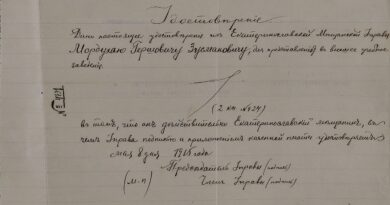 Удостоверение
Дано настоящее удостоверение из Екатеринославской Мещанской Управы
Мордухаю Гершовичу Зусмановичу, для представления в высшее учебное
заведение
(2 кн. №24)
в том, что он действительно Екатеринославский мещанин, в
чем Управа подписью и приложением казенной печати удостоверяет
мая 8 дня 191 года
Председатель Управы (подпись)
(М.П.) Член Управы (подпись)